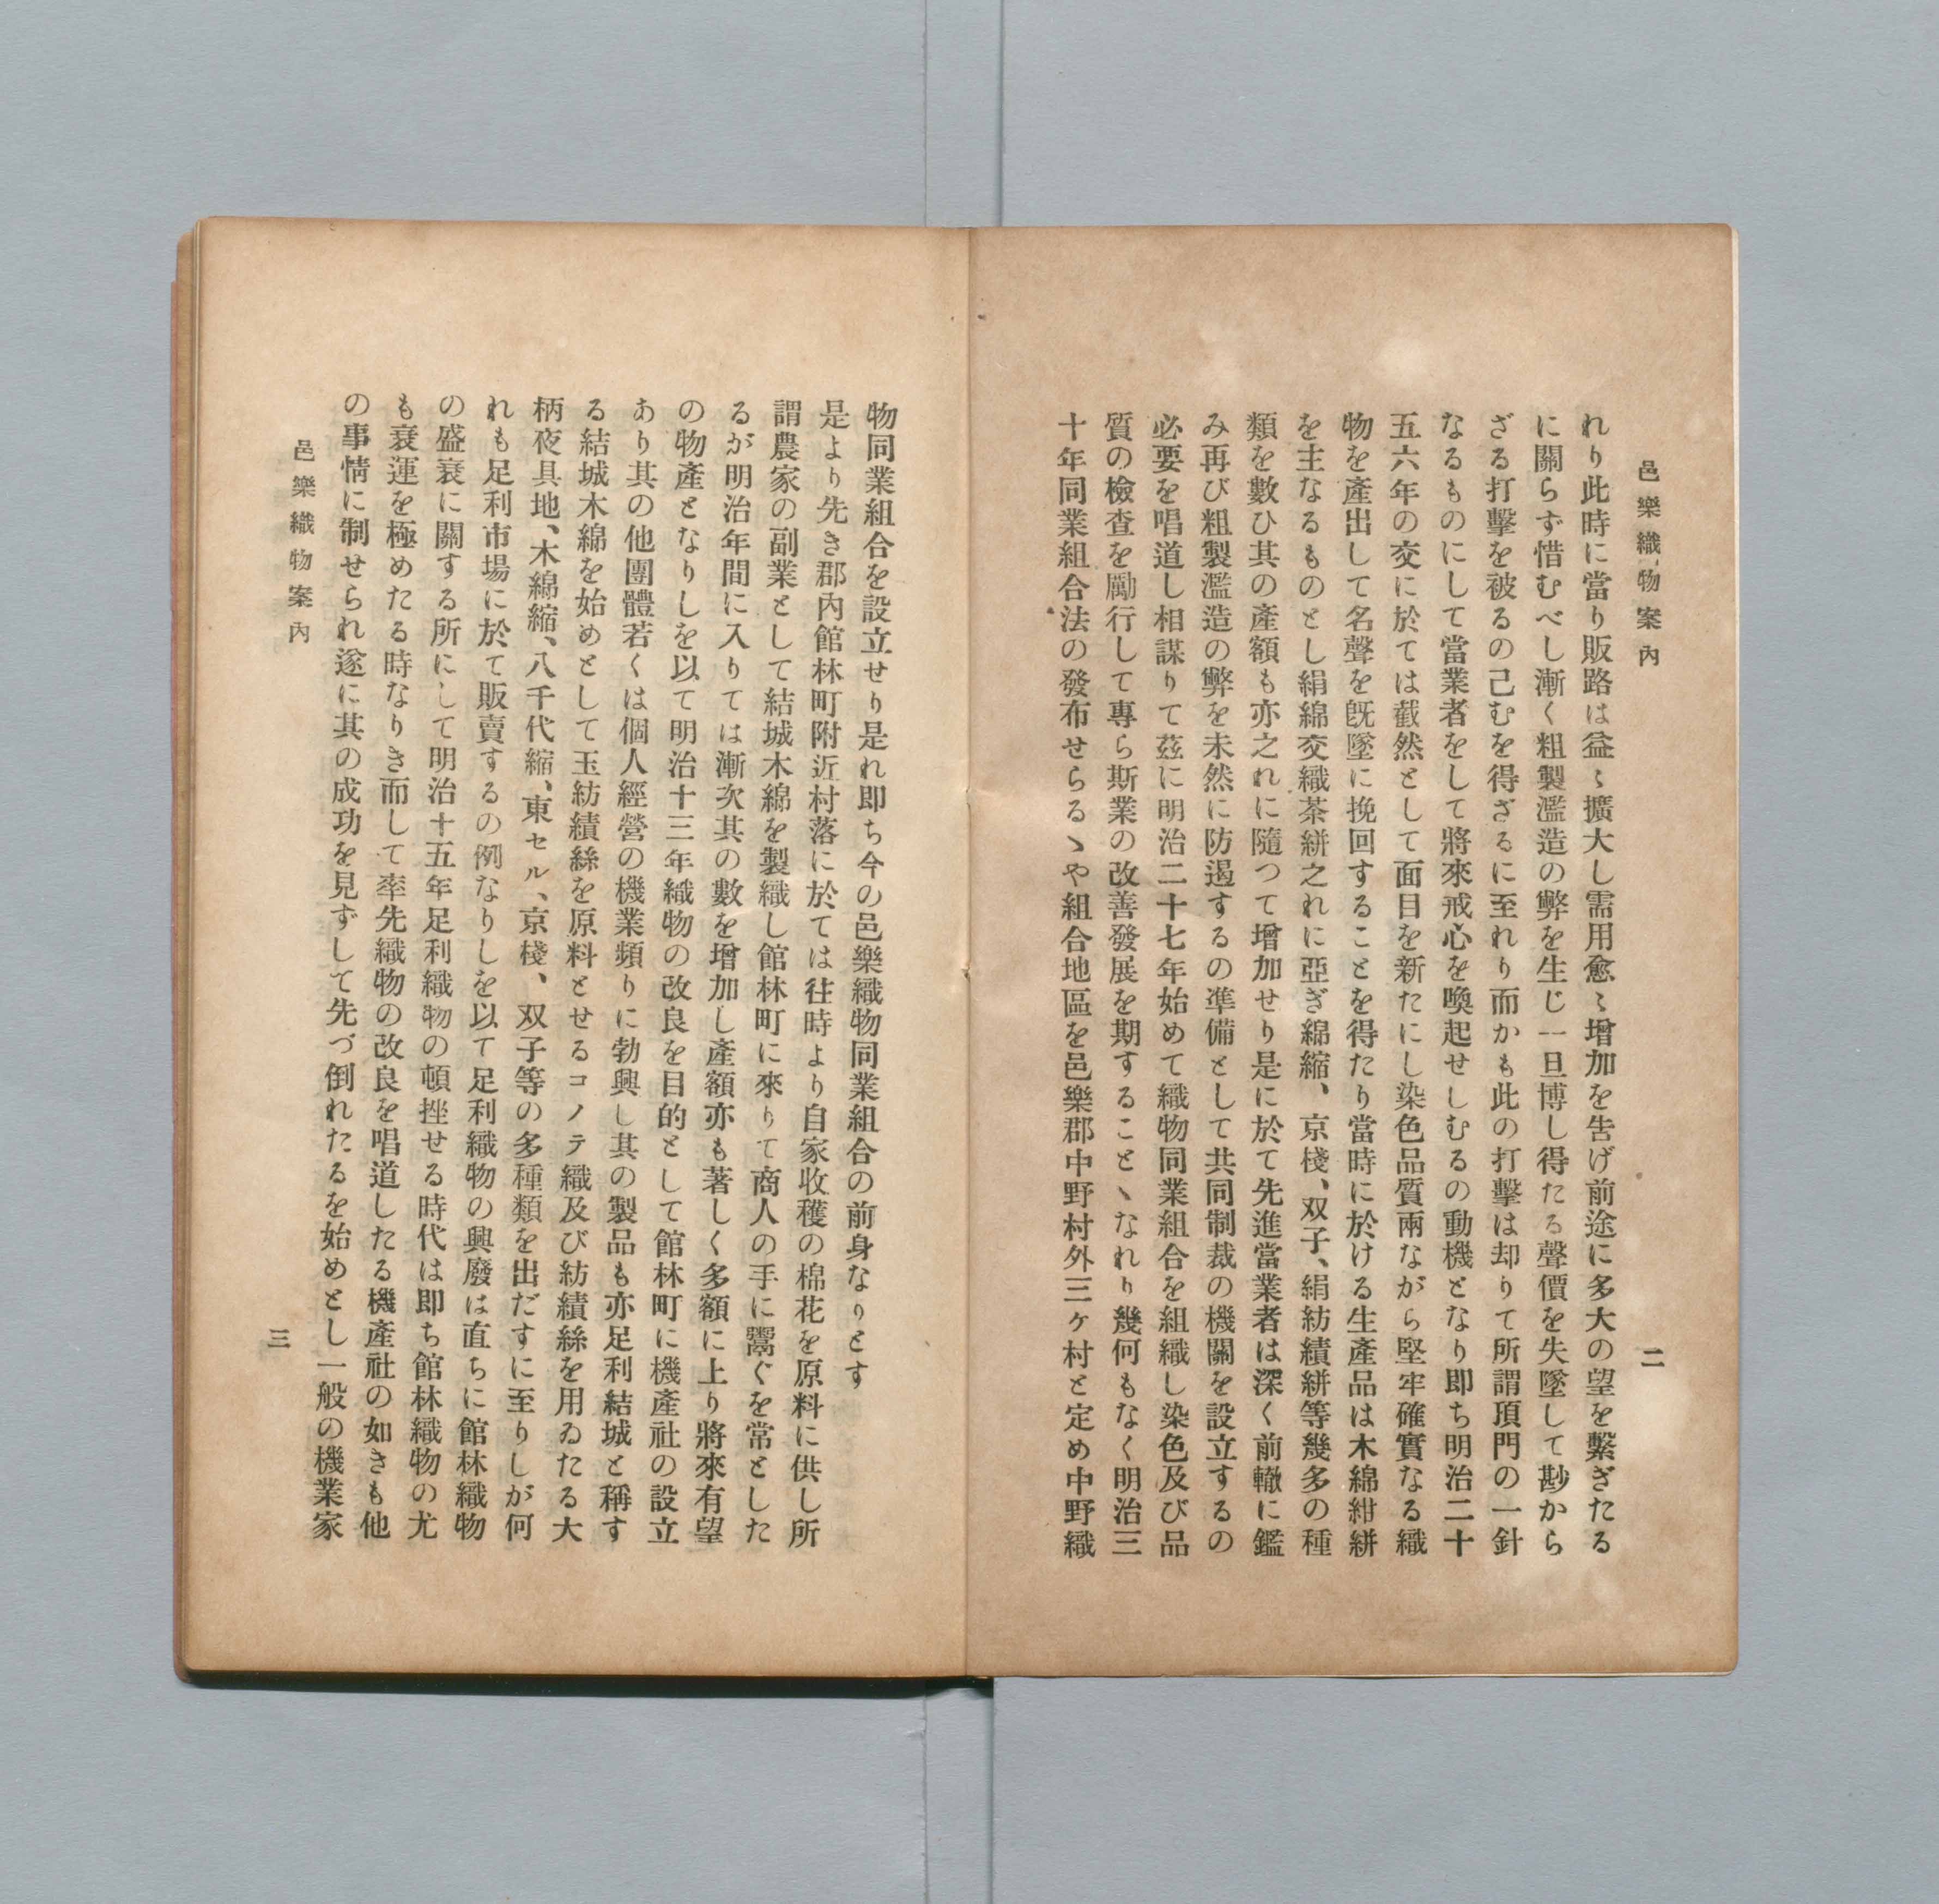 邑樂織物案內
二
れり此時に當り販路は益〻擴大し需用愈〻增加を吿げ前途に多大の望を繫ぎたる
に關らず惜むべし漸く粗製濫造の弊を生じ一旦博し得たる聲價を失墜して尠から
ざる打擊を被るの己むを得ざるに至れり而かも此の打擊は却りて所謂頂門の一針
なるものにして當業者をして將來戒心を喚起せしむるの動機となり卽ち明治二十
五六年の交に於ては截然として面目を新たにし染色品質兩ながら堅牢確實なる織
物を產出して名聲を旣墜に挽回することを得たり當時に於ける生產品は木綿紺絣
を主なるものとし絹綿交織茶絣之れに亞ぎ綿縮、京棧、双子、絹紡績絣等幾多の種
類を數ひ其の產額も亦之れに隨つて增加せり是に於て先進當業者は深く前轍に鑑
み再び粗製濫造の弊を未然に防遏するの準備として共同制裁の機關を設立するの
必要を唱道し相謀りて玆に明治二十七年始めて織物同業組合を組織し染色及び品
質の檢查を勵行して專ら斯業の改善發展を期することヽなれり幾何もなく明治三
十年同業組合法の發布せらるゝや組合地區を邑樂郡中野村外三ケ村と定め中野織
物同業組合を設立せり是れ卽ち今の邑樂織物同業組合の前身なりとす
是より先き郡內館林町附近村落に於ては往時より自家收穫の棉花を原料に供し所
謂農家の副業として結城木綿を製織し館林町に來りて商人の手に鬻ぐを常とした
るが明治年間に入りては漸次其の數を增加し產額亦も著しく多額に上り將來有望
の物產となりしを以て明治十三年織物の改良を目的として館林町に機產社の設立
あり其の他團體若くは個人經營の機業頻りに勃興し其の製品も亦足利結城と稱す
る結城木綿を始めとして玉紡績絲を原料とせるコノテ織及び紡績絲を用ゐたる大
柄夜具地、木綿縮、八千代縮、東セル、京棧、双子等の多種類を出だすに至りしが何
れも足利市場に於て販賣するの例なりしを以て足利織物の興廢は直ちに館林織物
の盛衰に關する所にして明治十五年足利織物の頓挫せる時代は卽ち館林織物の尤
も衰運を極めたる時なりき而して率先織物の改良を唱道したる機產社の如きも他
の事情に制せられ遂に其の成功を見ずして先づ倒れたるを始めとし一般の機業家
邑樂織物案內
三